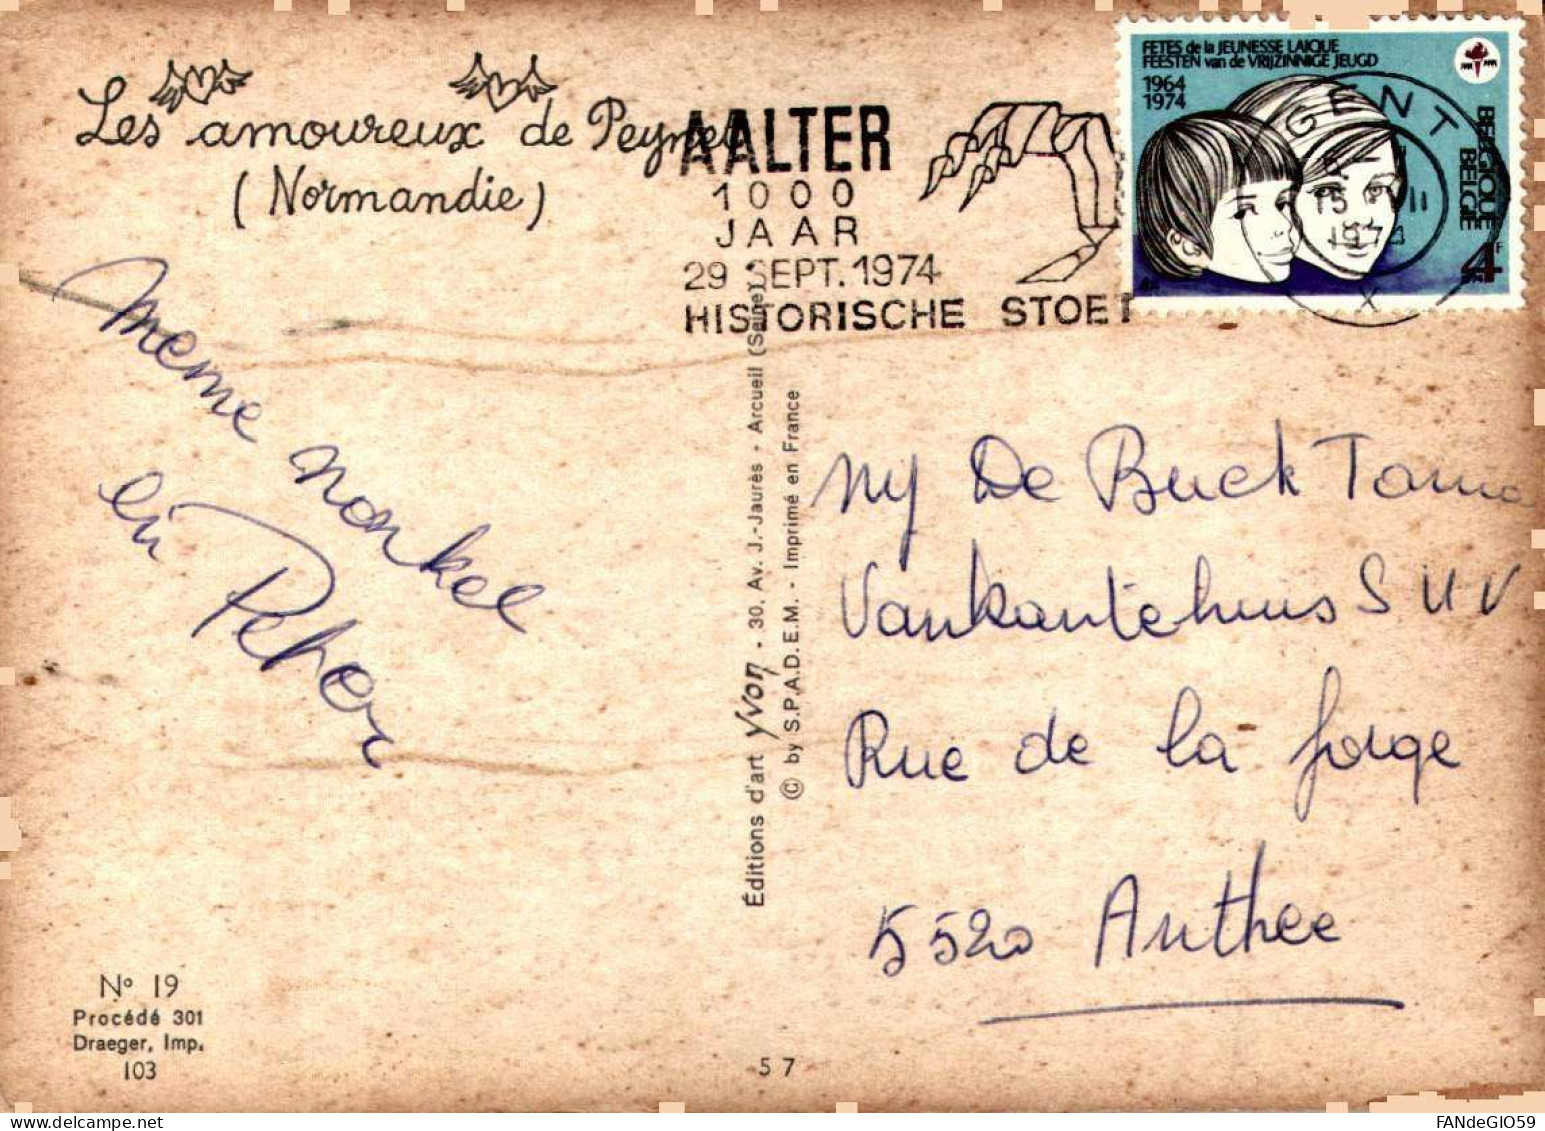 Les amoureux de Peynet
(Normandie)
AALTER
1000
JAAR
29 SEPT. 1974
HISTORISCHE STOET
FETES de la JEUNESSE LAIQUE
FEESTEN van de VRIJZINNIGE JEUGD
1964
1974
BELGIQUE
BELGIE
4F
GENT
1974
X
meme nonkel
en Peter
Éditions d'art Yvon - 30, Av. J.-Jaurès - Arcueil (Seine)
© by S.P.A.D.E.M. - Imprimé en France
De Buck
Vankantehuus S U V
Rue de la forge
5520 Anthee
Nº 19
Procédé 301
Draeger, Imp.
103
57
FANdeGIO59